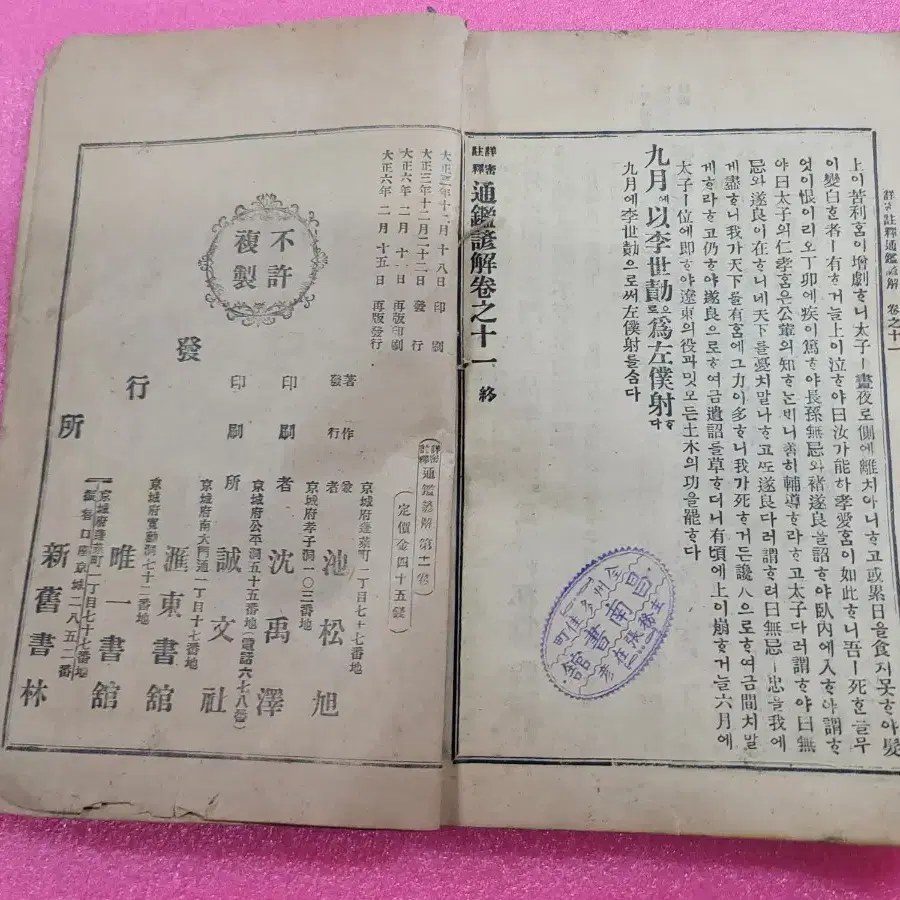 詳密註釋通鑑諺解 卷之十一
上이苦利ᄒᆞᆷ이增劇ᄒᆞ니太子ㅣ晝夜로側에離치아니ᄒᆞ고或累日을食지못ᄒᆞ야髮
이變白ᄒᆞᆫ者ㅣ有ᄒᆞ거ᄂᆞᆯ上이泣ᄒᆞ야曰汝가能히孝愛ᄒᆞᆷ이如此ᄒᆞ니吾ㅣ死ᄒᆞᆫᄃᆞᆯ무
엇이恨이리오丁卯에疾이篤ᄒᆞ야長孫無忌와褚遂良을詔ᄒᆞ야臥內에入ᄒᆞ야謂ᄒᆞ
야曰太子의仁孝ᄒᆞᆷ은公輩의知ᄒᆞᄂᆞᆫ비니善히輔導ᄒᆞ라ᄒᆞ고太子다려謂ᄒᆞ야曰無
忌와遂良이在ᄒᆞ니네天下를憂치말나ᄒᆞ고ᄯᅩ遂良다려謂ᄒᆞ려曰無忌ㅣ忠을我에
게盡ᄒᆞ니我가天下를有ᄒᆞᆷ에그力이多ᄒᆞ니我가死ᄒᆞ거든讒人으로ᄒᆞ여금間치말
게ᄒᆞ라ᄒᆞ고仍ᄒᆞ야遂良으로ᄒᆞ여금遺詔를草ᄒᆞ더니有頃에上이崩ᄒᆞ거ᄂᆞᆯ六月에
太子ㅣ位에即ᄒᆞ야遼東의役과밋모든土木의功을罷ᄒᆞ다
九月에以李世勣으로爲左僕射ᄒᆞ다
九月에李世勣으로써左僕射를ᄉᆞᆷ다
詳密註釋 通鑑諺解卷之十一 終
大正三年十二月二十二日 發行
大正六年二月十日 再版印刷
大正六年二月十五日 再版發行
不許複製
詳密註釋 通鑑諺解 第十一卷
(定價金四十五錢)
京城府蓬萊町一丁目七十七番地
著作兼發行者 池松旭
京城府孝子洞一〇三番地
印刷者 沈禹澤
京城府公平洞五十五番地(電話六七八番)
印刷所 誠文社
京城府南大門通一丁目十七番地
滙東書舘
京城府寬勳洞七十二番地
唯一書舘
京城府蓬萊町一丁目七十七番地
振替口座京城二八五二番
發行所 新舊書林